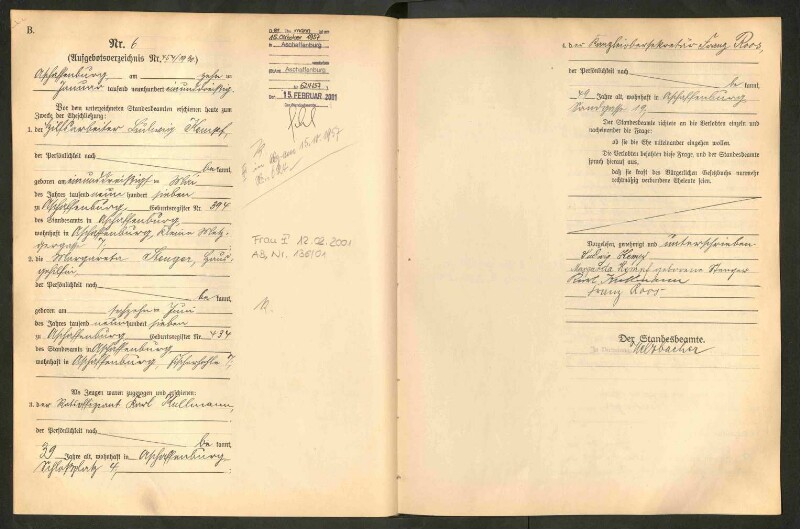 B.
Nr. 6
(Aufgebotsverzeichnis Nr.
Aschaffenburg am zehn
Januar tausend neunhundert einunddreißig.
Vor dem unterzeichneten Standesbeamten erschienen heute zum
Zweck der Eheschließung:
1. der Hilfsarbeiter Ludwig Kempf,
der Persönlichkeit nach
be kannt,
geboren am einunddreißigst en Mai
des Jahres tausend neun hundert sieben
zu Aschaffenburg Geburtsregister Nr. 394
des Standesamts in Aschaffenburg
wohnhaft in Aschaffenburg, kleine Metz-
gergasse 7,
2. die Margareta Stenger, Haus-
gehilfin,
der Persönlichkeit nach
be kannt,
geboren am sechzehn ten Juni
des Jahres tausend neunhundert sieben
zu Aschaffenburg Geburtsregister Nr. 434
des Standesamts in Aschaffenburg
wohnhaft in Aschaffenburg, Fischerhohle 7,
Als Zeugen waren zugezogen und erschienen:
3. der Karl Kullmann,
der Persönlichkeit nach
be kannt,
39 Jahre alt, wohnhaft in Aschaffenburg
Schloßplatz 4,
mann
15. Oktober 1957
in Aschaffenburg
Aschaffenburg
Nr. 624/57
Der 15. FEBRUAR 2001
am 15.10.1957
Frau I 12.02.2001
AB, Nr. 136/01
4. der Kanzleiobersekretär Franz Roos,
der Persönlichkeit nach
be kannt,
49 Jahre alt, wohnhaft in Aschaffenburg
Sandgasse 19,
Der Standesbeamte richtete an die Verlobten einzeln und
nacheinander die Frage:
ob sie die Ehe miteinander eingehen wollen.
Die Verlobten bejahten diese Frage, und der Standesbeamte
sprach hierauf aus,
daß sie kraft des Bürgerlichen Gesetzbuchs nunmehr
rechtmäßig verbundene Eheleute seien.
Vorgelesen, genehmigt und unterschrieben
Ludwig Kempf
Margareta Kempf geborene Stenger
Karl Kullmann
Franz Roos
Der Standesbeamte.
In Vertretung: Melzbacher